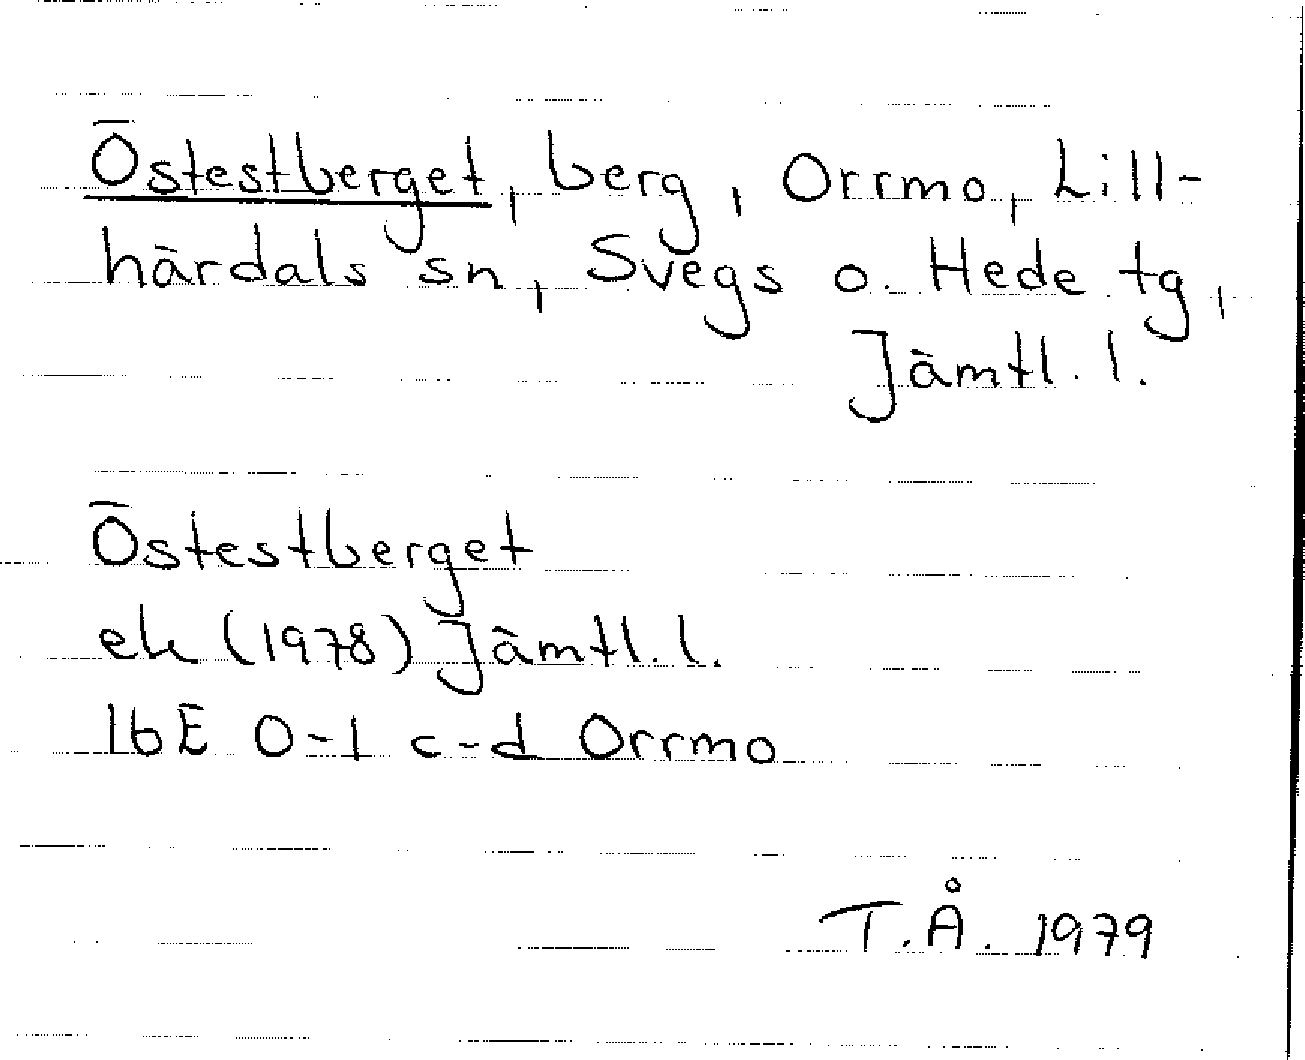 Östestberget, berg, Orrmo, Lill-
härdals sn, Svegs o. Hede tg,
Jämtl. l.
Östestberget
ek (1978) Jämtl. l.
16E 0-1 c-d Orrmo
T.Å. 1979